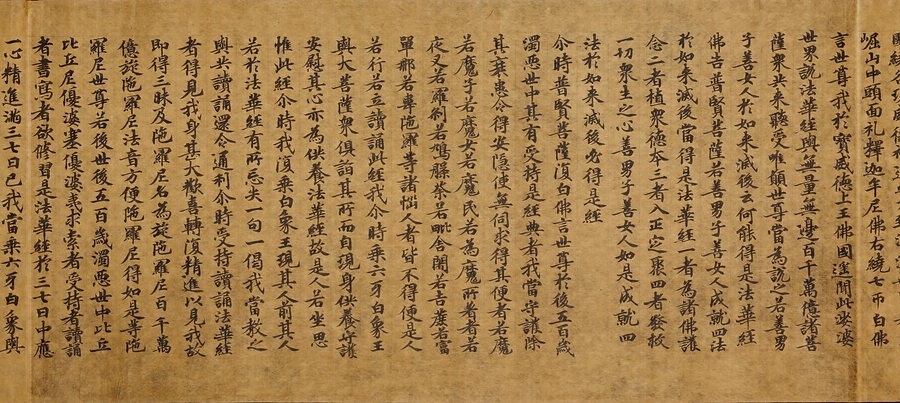 崛山中頭面礼釋迦牟尼佛右繞七帀白佛
言世尊我於寳威德上王佛國遥聞此娑婆
世界說法華經與無量無邊百千萬億諸菩
薩衆共来聽受唯願世尊當為說之若善男
子善女人於如来滅後云何能得是法華經
佛告普賢菩薩若善男子善女人成就四法
於如来滅後當得是法華經一者為諸佛護
念二者植衆德本三者入正定聚四者發救
一切衆生之心善男子善女人如是成就四
法於如来滅後必得是經
尒時普賢菩薩復白佛言世尊於後五百歲
濁惡世中其有受持是經典者我當守護除
其衰患令得安隱使無伺求得其便者若魔
若魔子若魔女若魔民若為魔所著者若
夜叉若羅刹若鳩槃茶若毗舍闍若吉蔗若富
單那若韋陁羅等諸惱人者皆不得便是人
若行若立讀誦此經我尒時乘六牙白象王
與大菩薩衆俱詣其所而自現身供養守護
安慰其心亦為供養法華經故是人若坐思
惟此經尒時我復乘白象王現其人前其人
若於法華經有所忘失一句一偈我當教之
與共讀誦還令通利尒時受持讀誦法華經
者得見我身甚大歡喜轉復精進以見我故
即得三昧及陁羅尼名為旋陁羅尼百千萬
億旋陁羅尼法音方便陁羅尼得如是等陁
羅尼世尊若後世後五百歲濁惡世中比丘
比丘尼優婆塞優婆夷求索者受持者讀誦
者書寫者欲脩習是法華經於三七日中應
一心精進滿三七日已我當乘六牙白象與